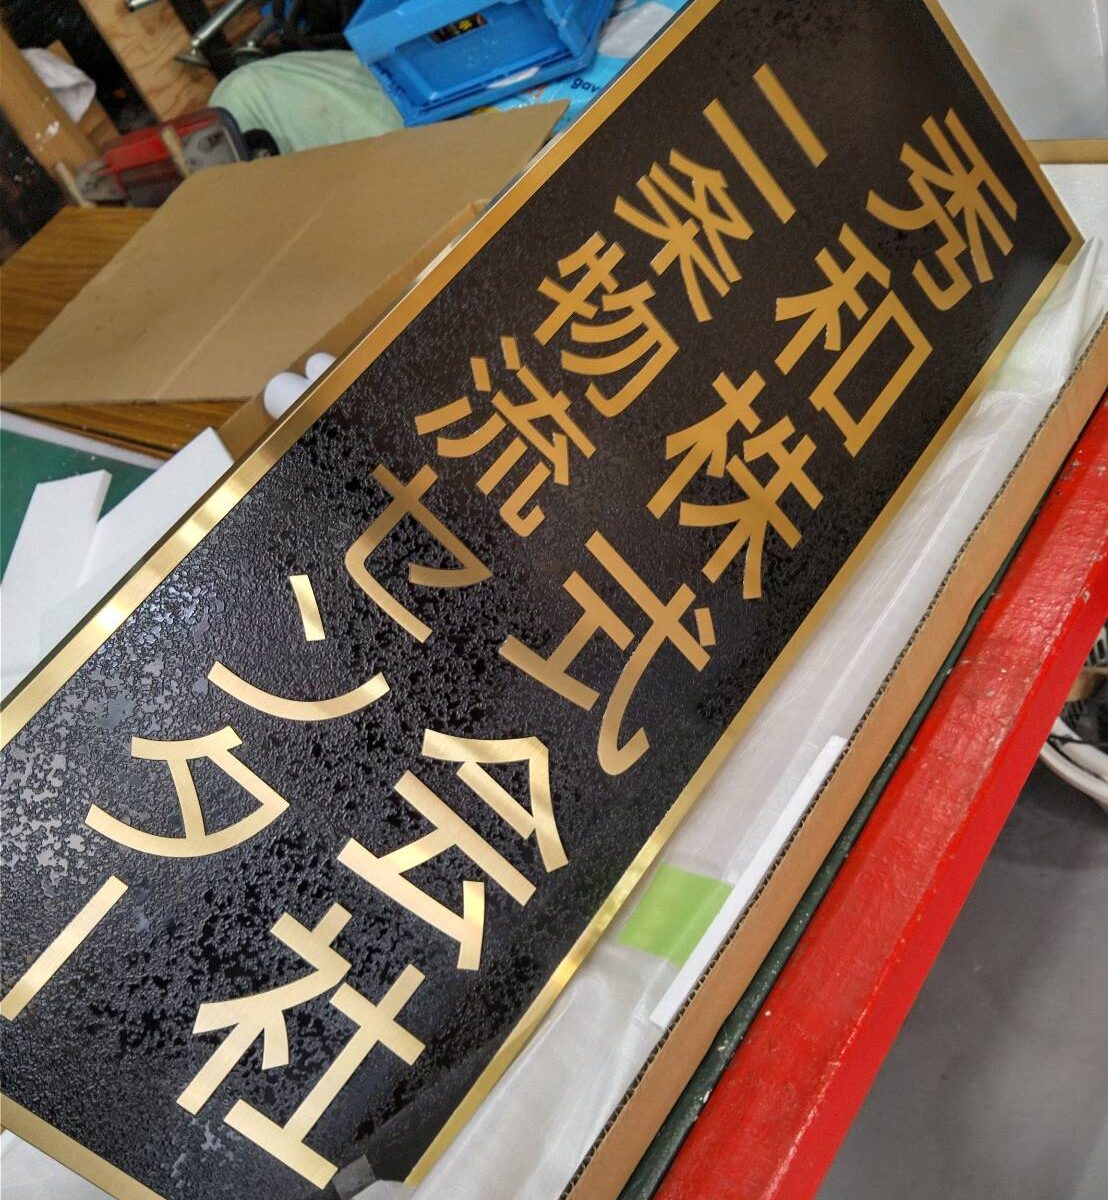 秀和株式会社
二条物流センター